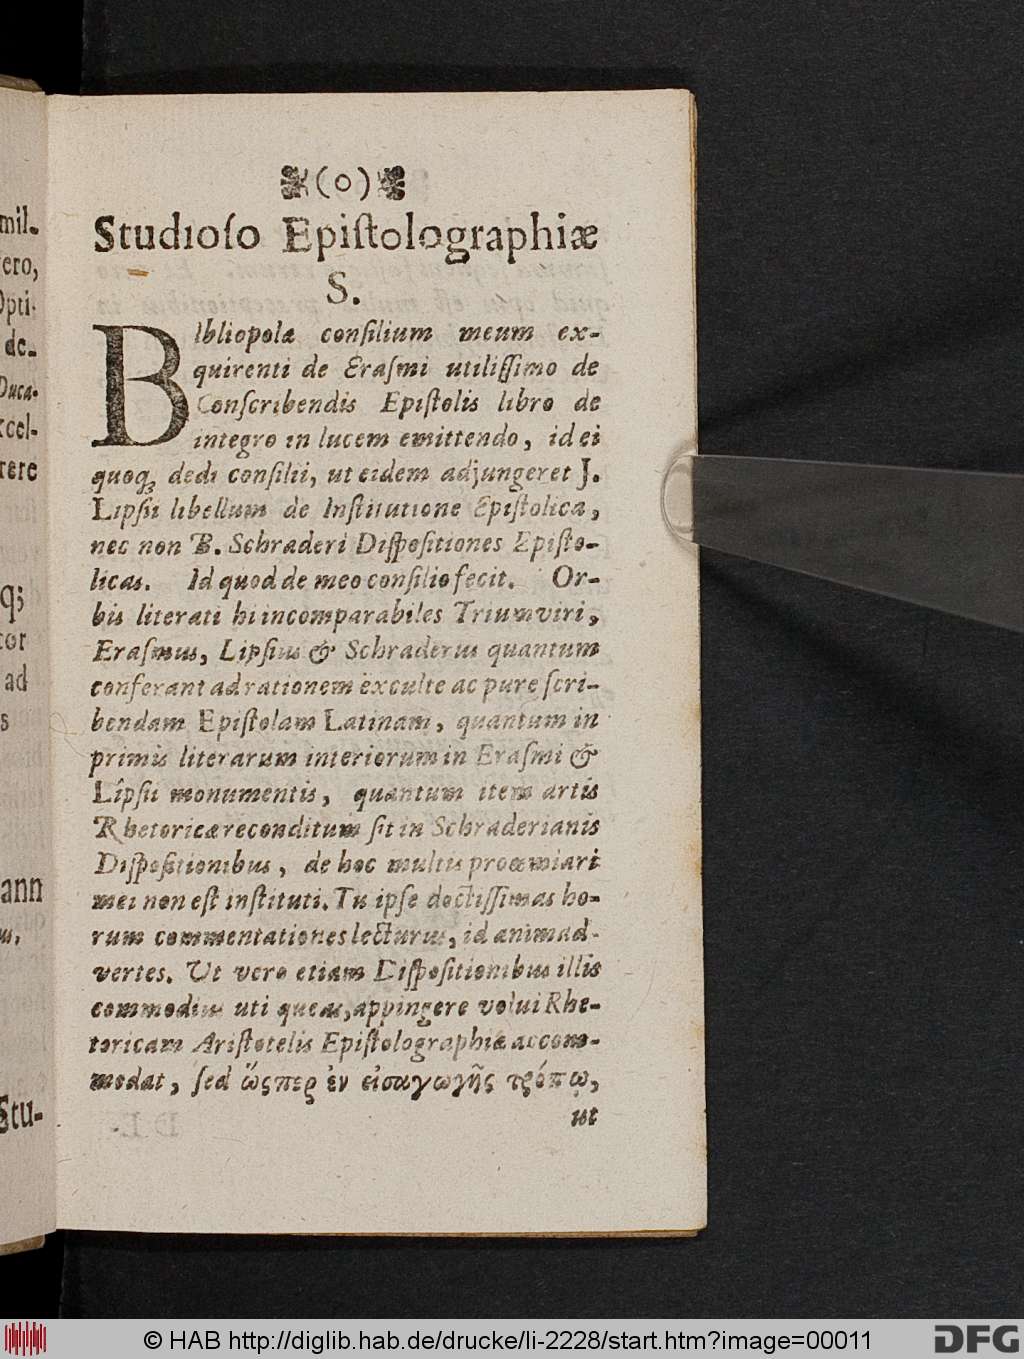 mil-
ero,
Opti-
de-
Duca-
xcel-
rere
q;
tor
ad
s
ann
us,
Stu-
(o)
Studioſo Epiſtolographiæ
S.
BIbliopolæ conſilium meum ex-
quirenti de Eraſmi utiliſſimo de
Conſcribendis Epiſtolis libro de
integro in lucem emittendo, id ei
quoq; dedi conſilii, ut eidem adjungeret J.
Lipſii libellum de Inſtitutione Epiſtolica,
nec non B. Schraderi Diſpoſitiones Epiſto-
licas. Id quod de meo conſilio fecit. Or-
bis literati hi incomparabiles Triumviri,
Eraſmus, Lipſius & Schraderus quantum
conferant ad rationem exculte ac pure ſcri-
bendam Epiſtolam Latinam, quantum in
primis literarum interiorum in Eraſmi &
Lipſii monumentis, quantum item artis
Rhetoricæ reconditum ſit in Schraderianis
Diſpoſitionibus, de hoc multis proœmiari
mei non eſt inſtituti. Tu ipſe doctiſſimas ho-
rum commentationes lecturus, id animad-
vertes. Ut vero etiam Diſpoſitionibus illis
commodius uti queas, appingere volui Rhe-
toricam Ariſtotelis Epiſtolographiæ accom-
modat, ſed ὥςπερ ἐν εἰσαγωγῆς τρόπῳ,
ut
© HAB http://diglib.hab.de/drucke/li-2228/start.htm?image=00011
DFG